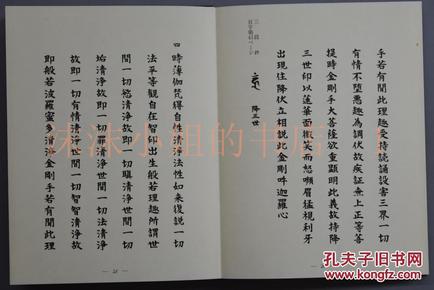 三段鈔
手若有聞此理趣受持讀誦設害三界一切
有情不墮惡趣為調伏故疾證無上正等菩
提時金剛手大菩薩欲重顯明此義故持降
三世印以蓮華面微笑而怒顰眉猛視利牙
出現住降伏立相說此金剛吽迦羅心
降三世
四 時薄伽梵得自性清淨法性如來復說一切
法平等觀自在智印出生般若理趣所謂世
間一切慾清淨故即一切瞋清淨世間一切
垢清淨故即一切罪清淨世間一切法清淨
故即一切有情清淨世間一切智智清淨故
即般若波羅蜜多清淨金剛手若有聞此理
— 21 —
妹妹小姐的书店
孔夫子旧书网